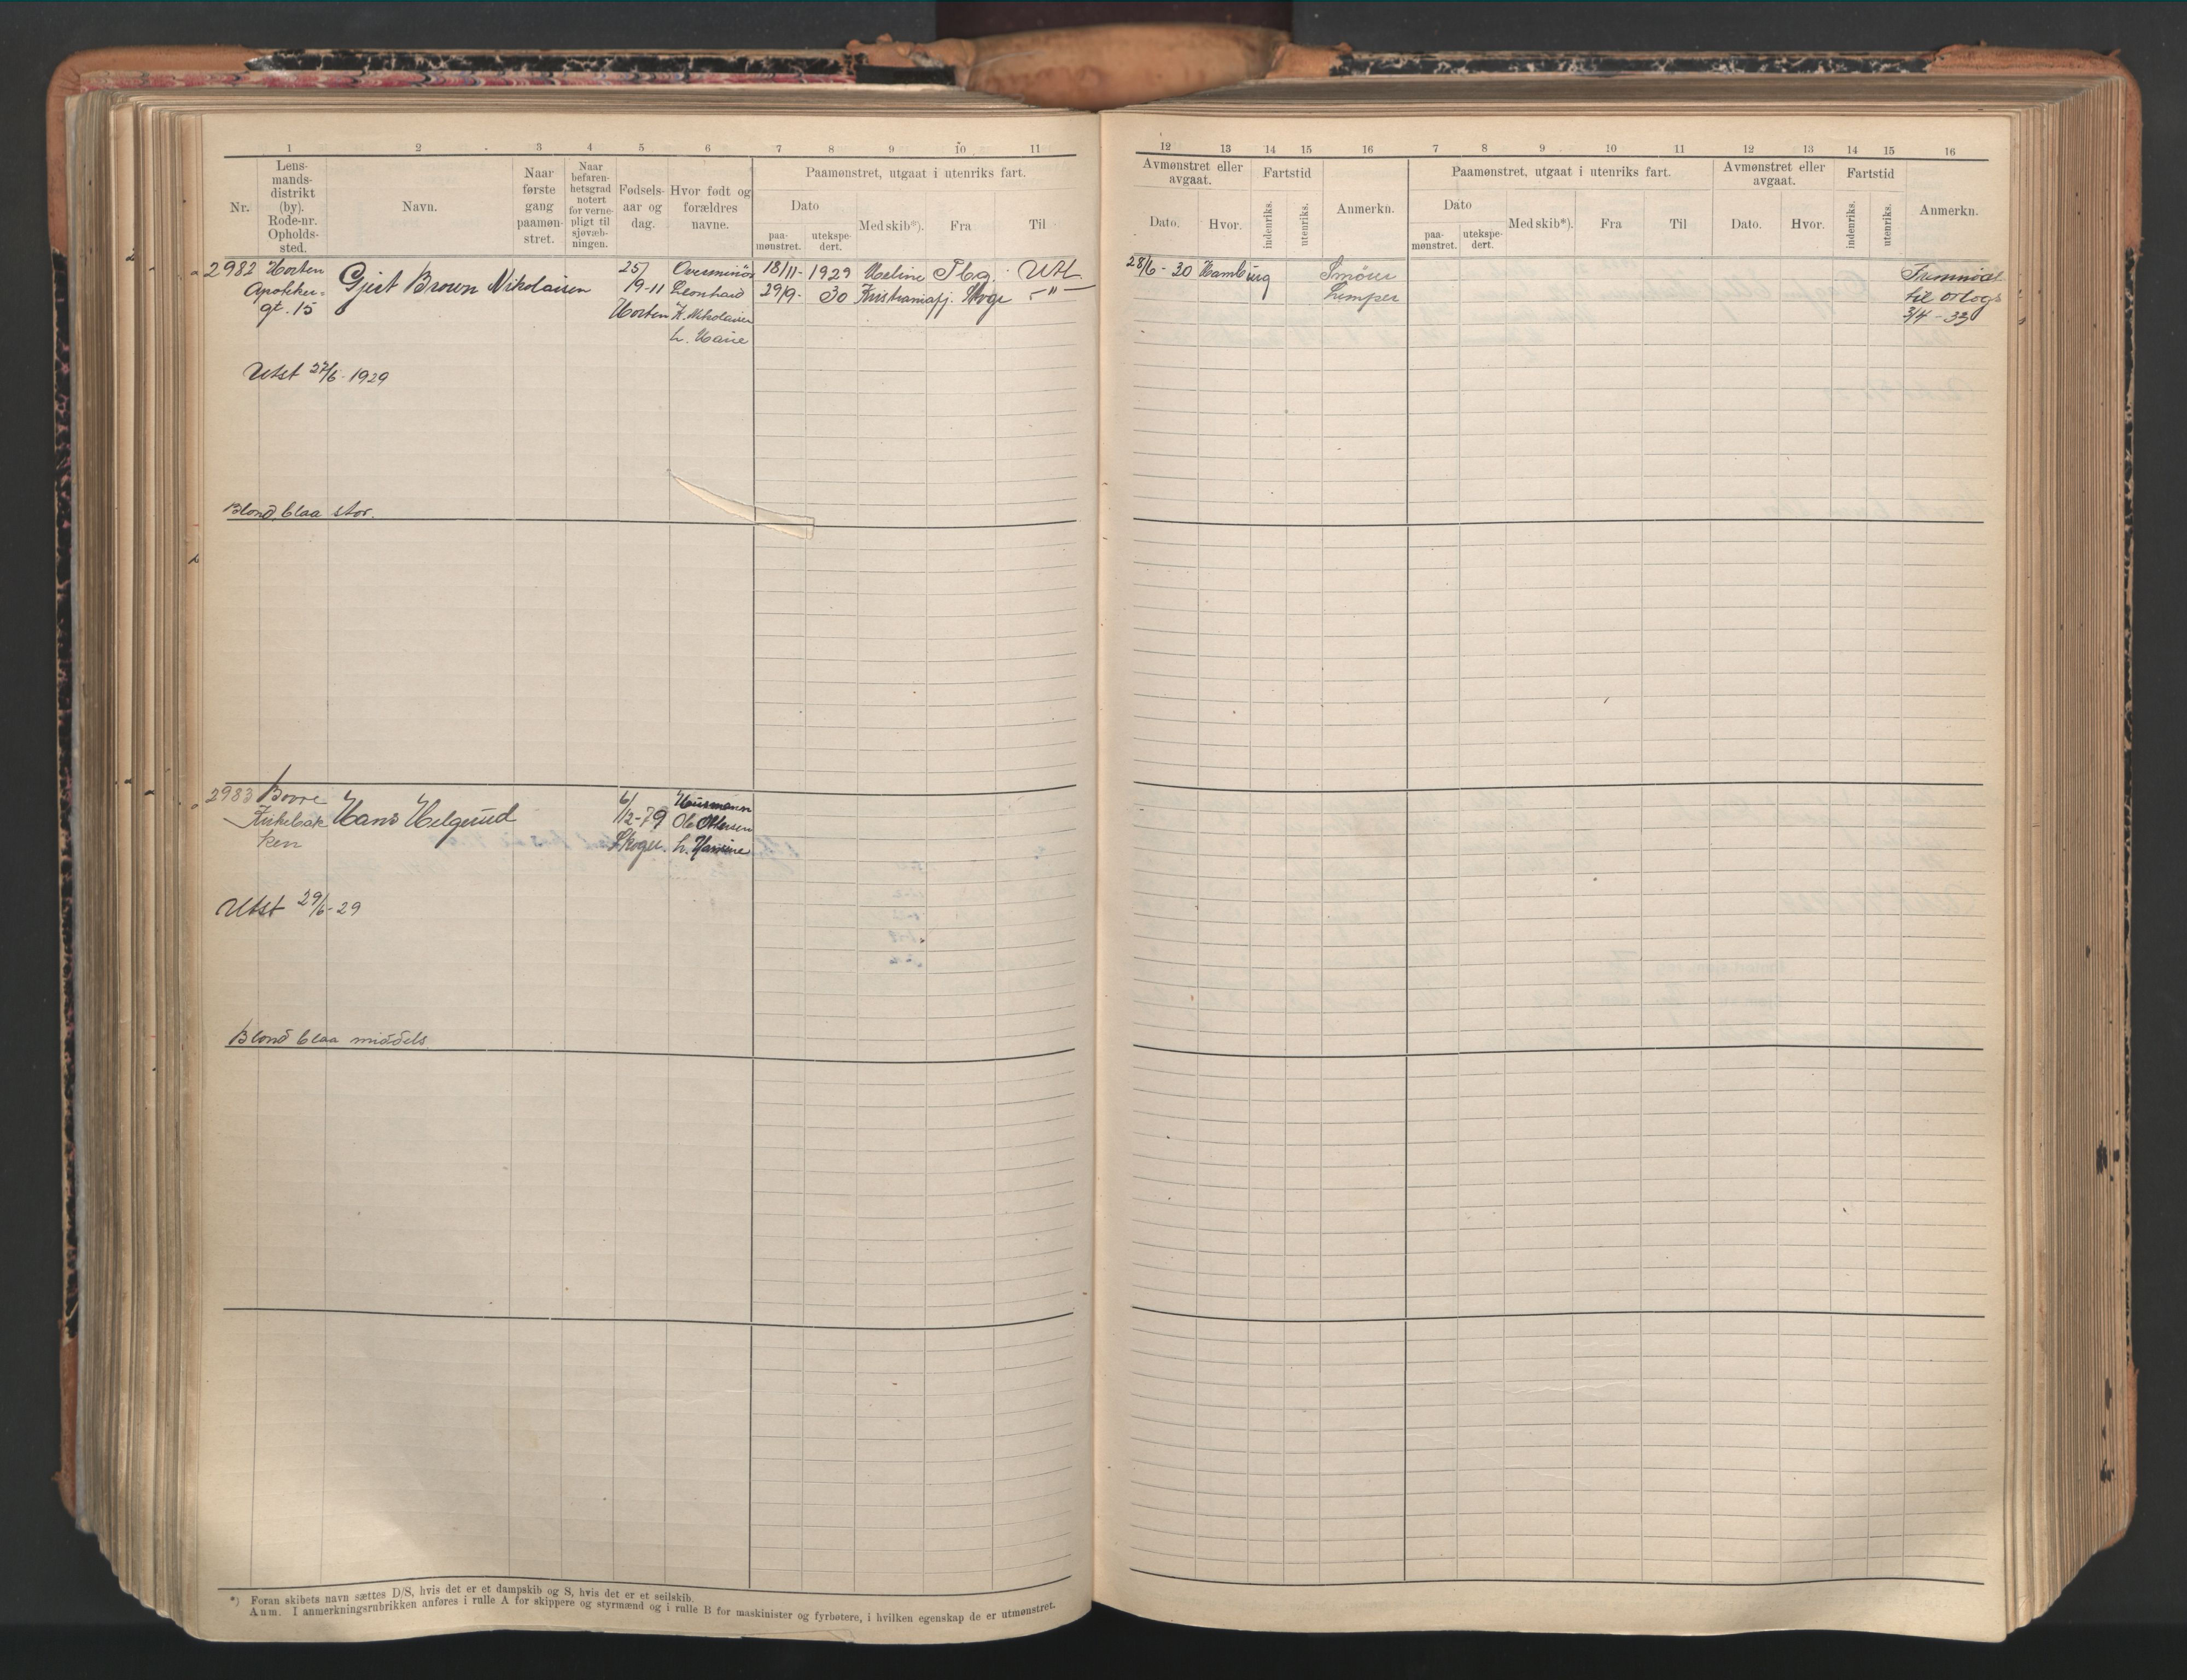 1 2 3 4 5 6 7 8 9 10 11
Nr.
Lens-
mands-
distrikt
(by).
Rode-nr.
Opholds-
sted.
Navn.
Naar
første
gang
paamøn-
stret.
Naar
befaren-
hetsgrad
notert
for verne-
pligt til
sjøvæb-
ningen.
Fødsels-
aar og
dag.
Hvor født og
forældres
navne.
Paamønstret, utgaat i utenriks fart.
Dato
paa-
mønstret.
utekspe-
dert.
Med skib*).
Fra
Til
2982 Horten Gjert Brown Nikolaisen 25/ 18/11- 1929 Meline Tbg Utl
Apotheker= 19-11 Leonhard 29/9- 30 Kristianiafj. -"-
gt. 15 Horten K. Nikolaisen
h. Marie
Utst 27/6- 1929
Blond, blaa stor.
2983 Borre Hans Helgerud 6/ Husmann
Kirkebak 12-79 Ole
ken Skoger. h.
Utst 29/6-29
Blond blaa middels
*) Foran skibets navn sættes D/S, hvis det er et dampskib og S, hvis det er et seilskib.
Anm. I anmerkningsrubrikken anføres i rulle A for skippere og styrmænd og i rulle B for maskinister og fyrbøtere, i hvilken egenskap de er utmønstret.
12 13 14 15 16 7 8 9 10 11 12 13 14 15 16
Avmønstret eller
avgaat.
Dato.
Hvor.
Fartstid
indenriks.
utenriks.
Anmerkn.
Paamønstret, utgaat i utenriks fart.
Dato
paa-
mønstret.
utekspe-
dert.
Med skib*).
Fra
Til
Avmønstret eller
avgaat.
Dato.
Hvor.
Fartstid
indenriks.
utenriks.
Anmerkn.
28/6- 30 Hamburg Smører
Lemper til orlogs
3/4-33